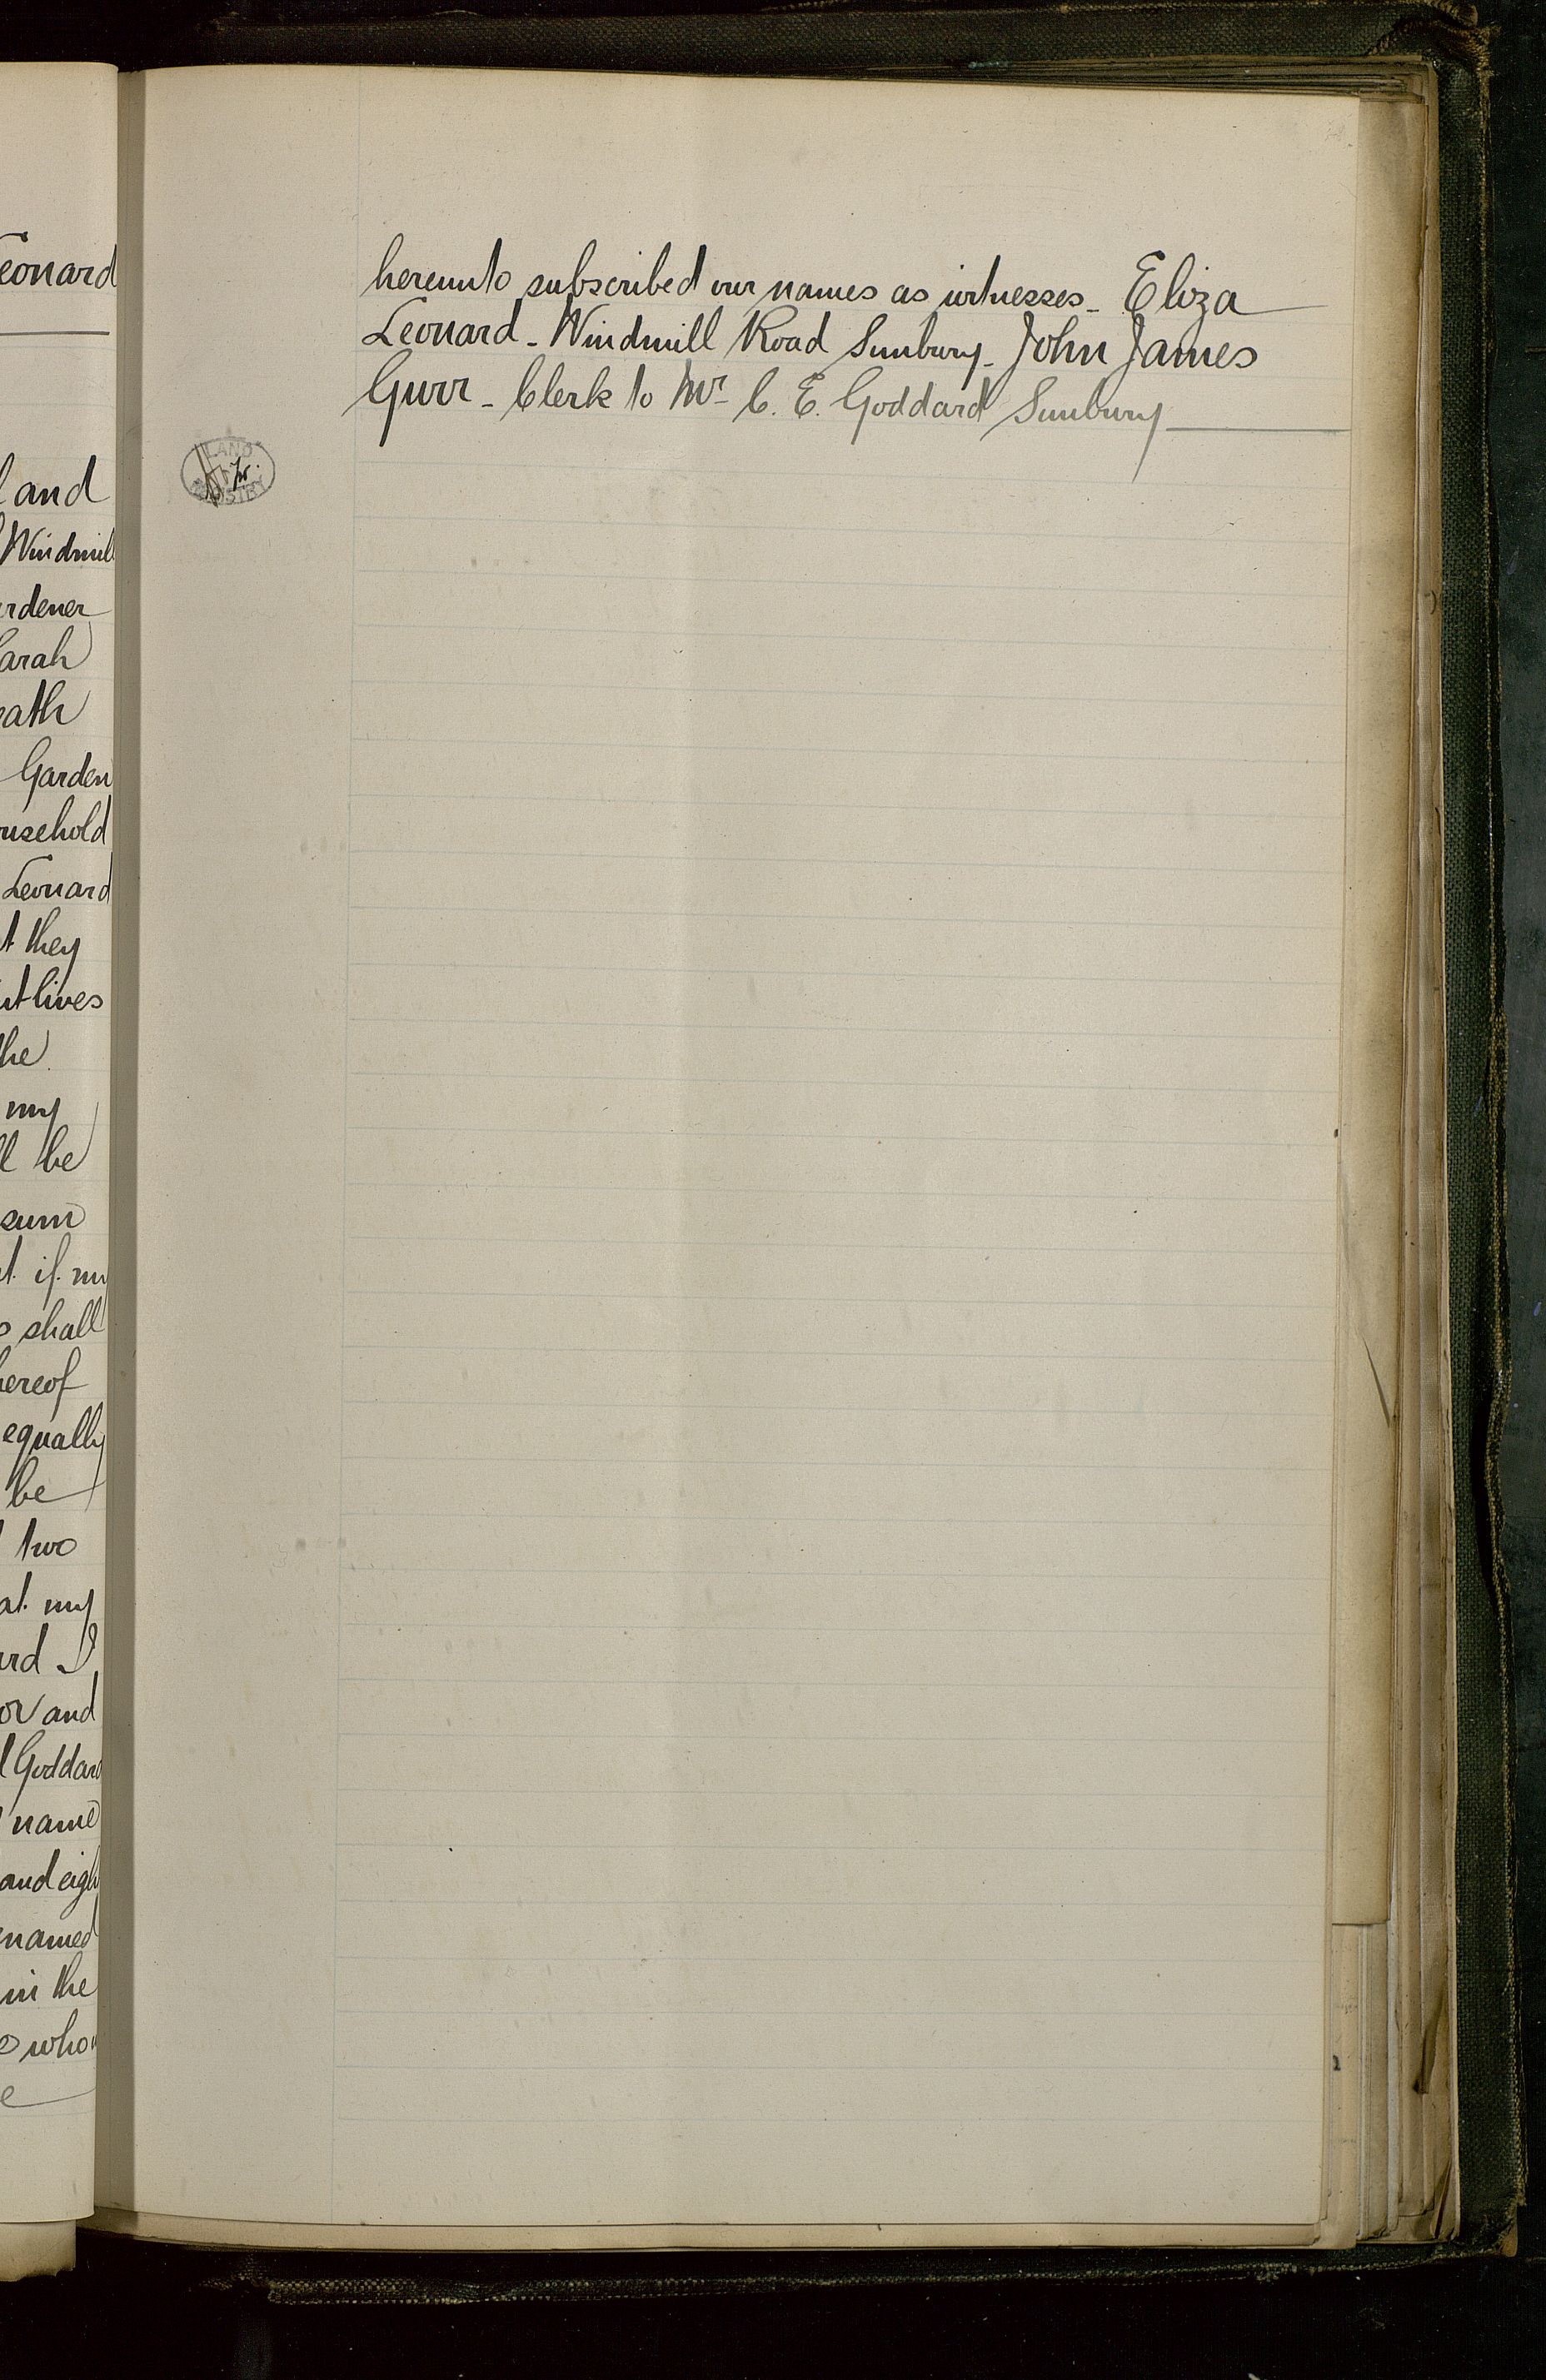 eonard
and
Windmill
rdener
arah
ath
Garden
usehold
Leonard
t they
utlives
he
my
ll be
sum
t. if my
shall
hereof
equally
be
two
at my
ard I
or and
Goddard
name
and eigh
named
in the
who
e
hereunto subscribed our names as witnesses - Eliza
Leonard - Windmill Road Sunbury - John James
Gurr - Clerk to Mr C. E. Goddard Sunbury
LAND
REGISTRY